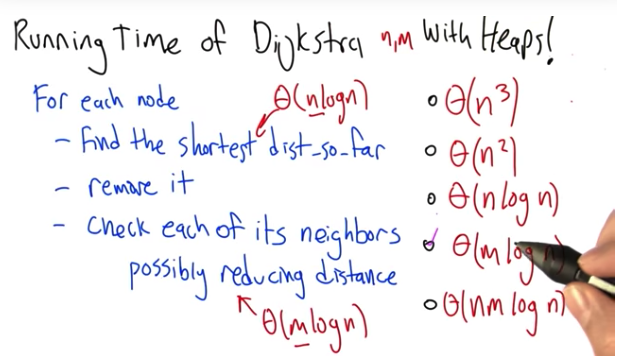 Running Time of Dijkstra n,m With Heaps!
For each node
Θ(n log n)
- find the shortest dist_so_far
- remove it
- check each of its neighbors
possibly reducing distance
Θ(m log n)
Θ(n³)
Θ(n²)
Θ(n log n)
Θ(m log n)
Θ(nm log n)